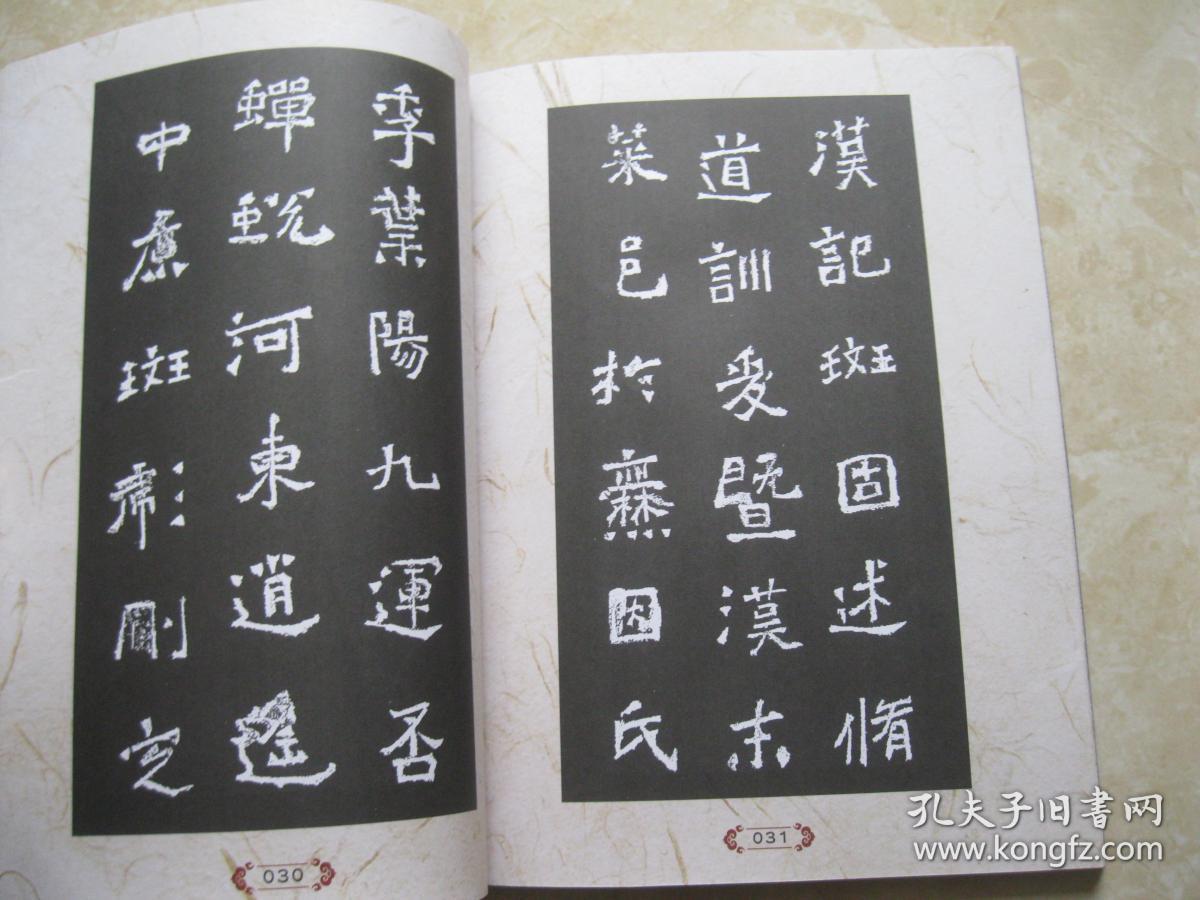 季葉陽九運否
蟬蛻河東逍遙
中原斑彪刪定
030
漢記斑固述脩
道訓爰暨漢末
菜邑於爨因氏
031
孔夫子旧书网
www.kongfz.com